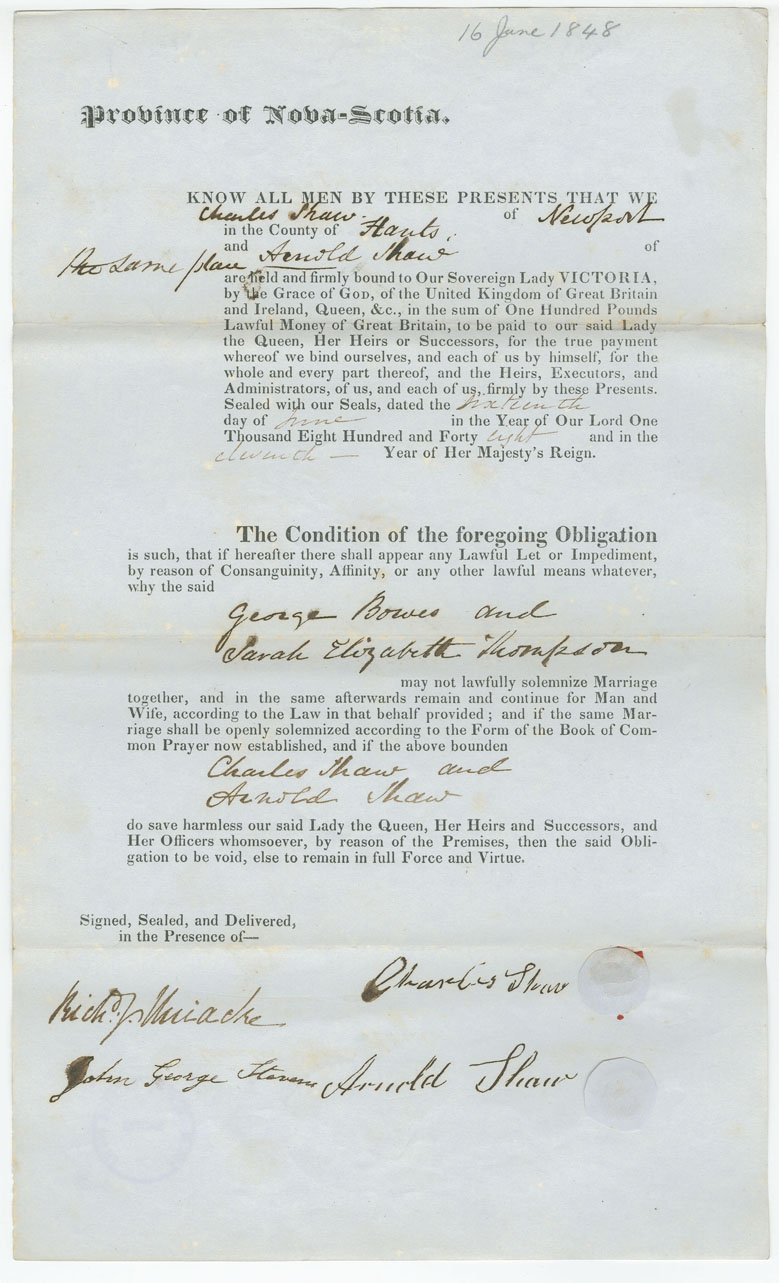 16 June 1848
Province of Nova-Scotia.
KNOW ALL MEN BY THESE PRESENTS THAT WE
Charles Shaw of Newport
in the County of Hants
and Arnold Shaw of
the same place
are held and firmly bound to Our Sovereign Lady VICTORIA,
by the Grace of GOD, of the United Kingdom of Great Britain
and Ireland, Queen, &c., in the sum of One Hundred Pounds
Lawful Money of Great Britain, to be paid to our said Lady
the Queen, Her Heirs or Successors, for the true payment
whereof we bind ourselves, and each of us by himself, for the
whole and every part thereof, and the Heirs, Executors, and
Administrators, of us, and each of us, firmly by these Presents.
Sealed with our Seals, dated the sixteenth
day of June in the Year of Our Lord One
Thousand Eight Hundred and Forty eight and in the
eleventh — Year of Her Majesty's Reign.
The Condition of the foregoing Obligation
is such, that if hereafter there shall appear any Lawful Let or Impediment,
by reason of Consanguinity, Affinity, or any other lawful means whatever,
why the said
George Bowes and
Sarah Elizabeth Thompson
may not lawfully solemnize Marriage
together, and in the same afterwards remain and continue for Man and
Wife, according to the Law in that behalf provided; and if the same Mar-
riage shall be openly solemnized according to the Form of the Book of Com-
mon Prayer now established, and if the above bounden
Charles Shaw and
Arnold Shaw
do save harmless our said Lady the Queen, Her Heirs and Successors, and
Her Officers whomsoever, by reason of the Premises, then the said Obli-
gation to be void, else to remain in full Force and Virtue.
Signed, Sealed, and Delivered,
in the Presence of—
Charles Shaw
Richd. J. Uniacke
John George Stevens Arnold Shaw